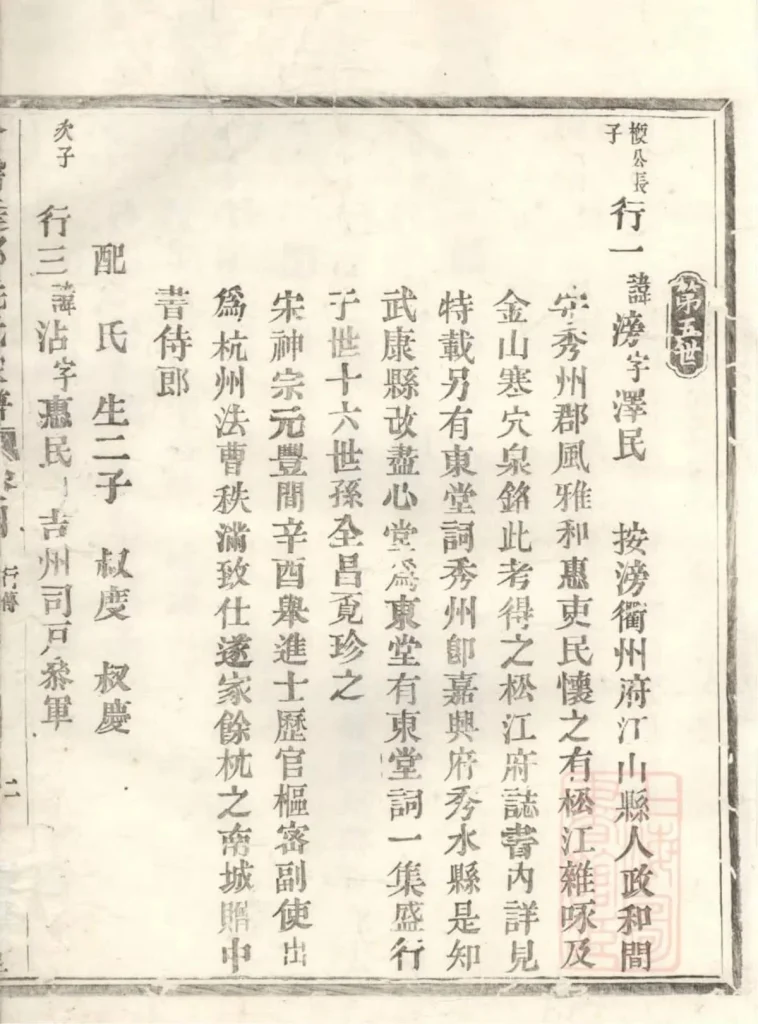 第五世
㮄公長子
行一諱滂字澤民 按滂衢州府江山縣人政和間
守秀州郡風雅和惠吏民懷之有松江雜咏及
金山寒穴泉銘此考得之松江府誌書內詳見
特載另有東堂詞秀州卽嘉興府秀水縣是知
武康縣改盡心堂爲東堂有東堂詞一集盛行
于世十六世孫全昌覔珍之
宋神宗元豐間辛酉舉進士歷官樞密副使出
爲杭州法曹秩滿致仕遂家餘杭之南城贈中
書侍郎
配 氏 生二子 叔度 叔慶
次子
行三諱沾字惠民 吉州司戶叅軍
行傳
二